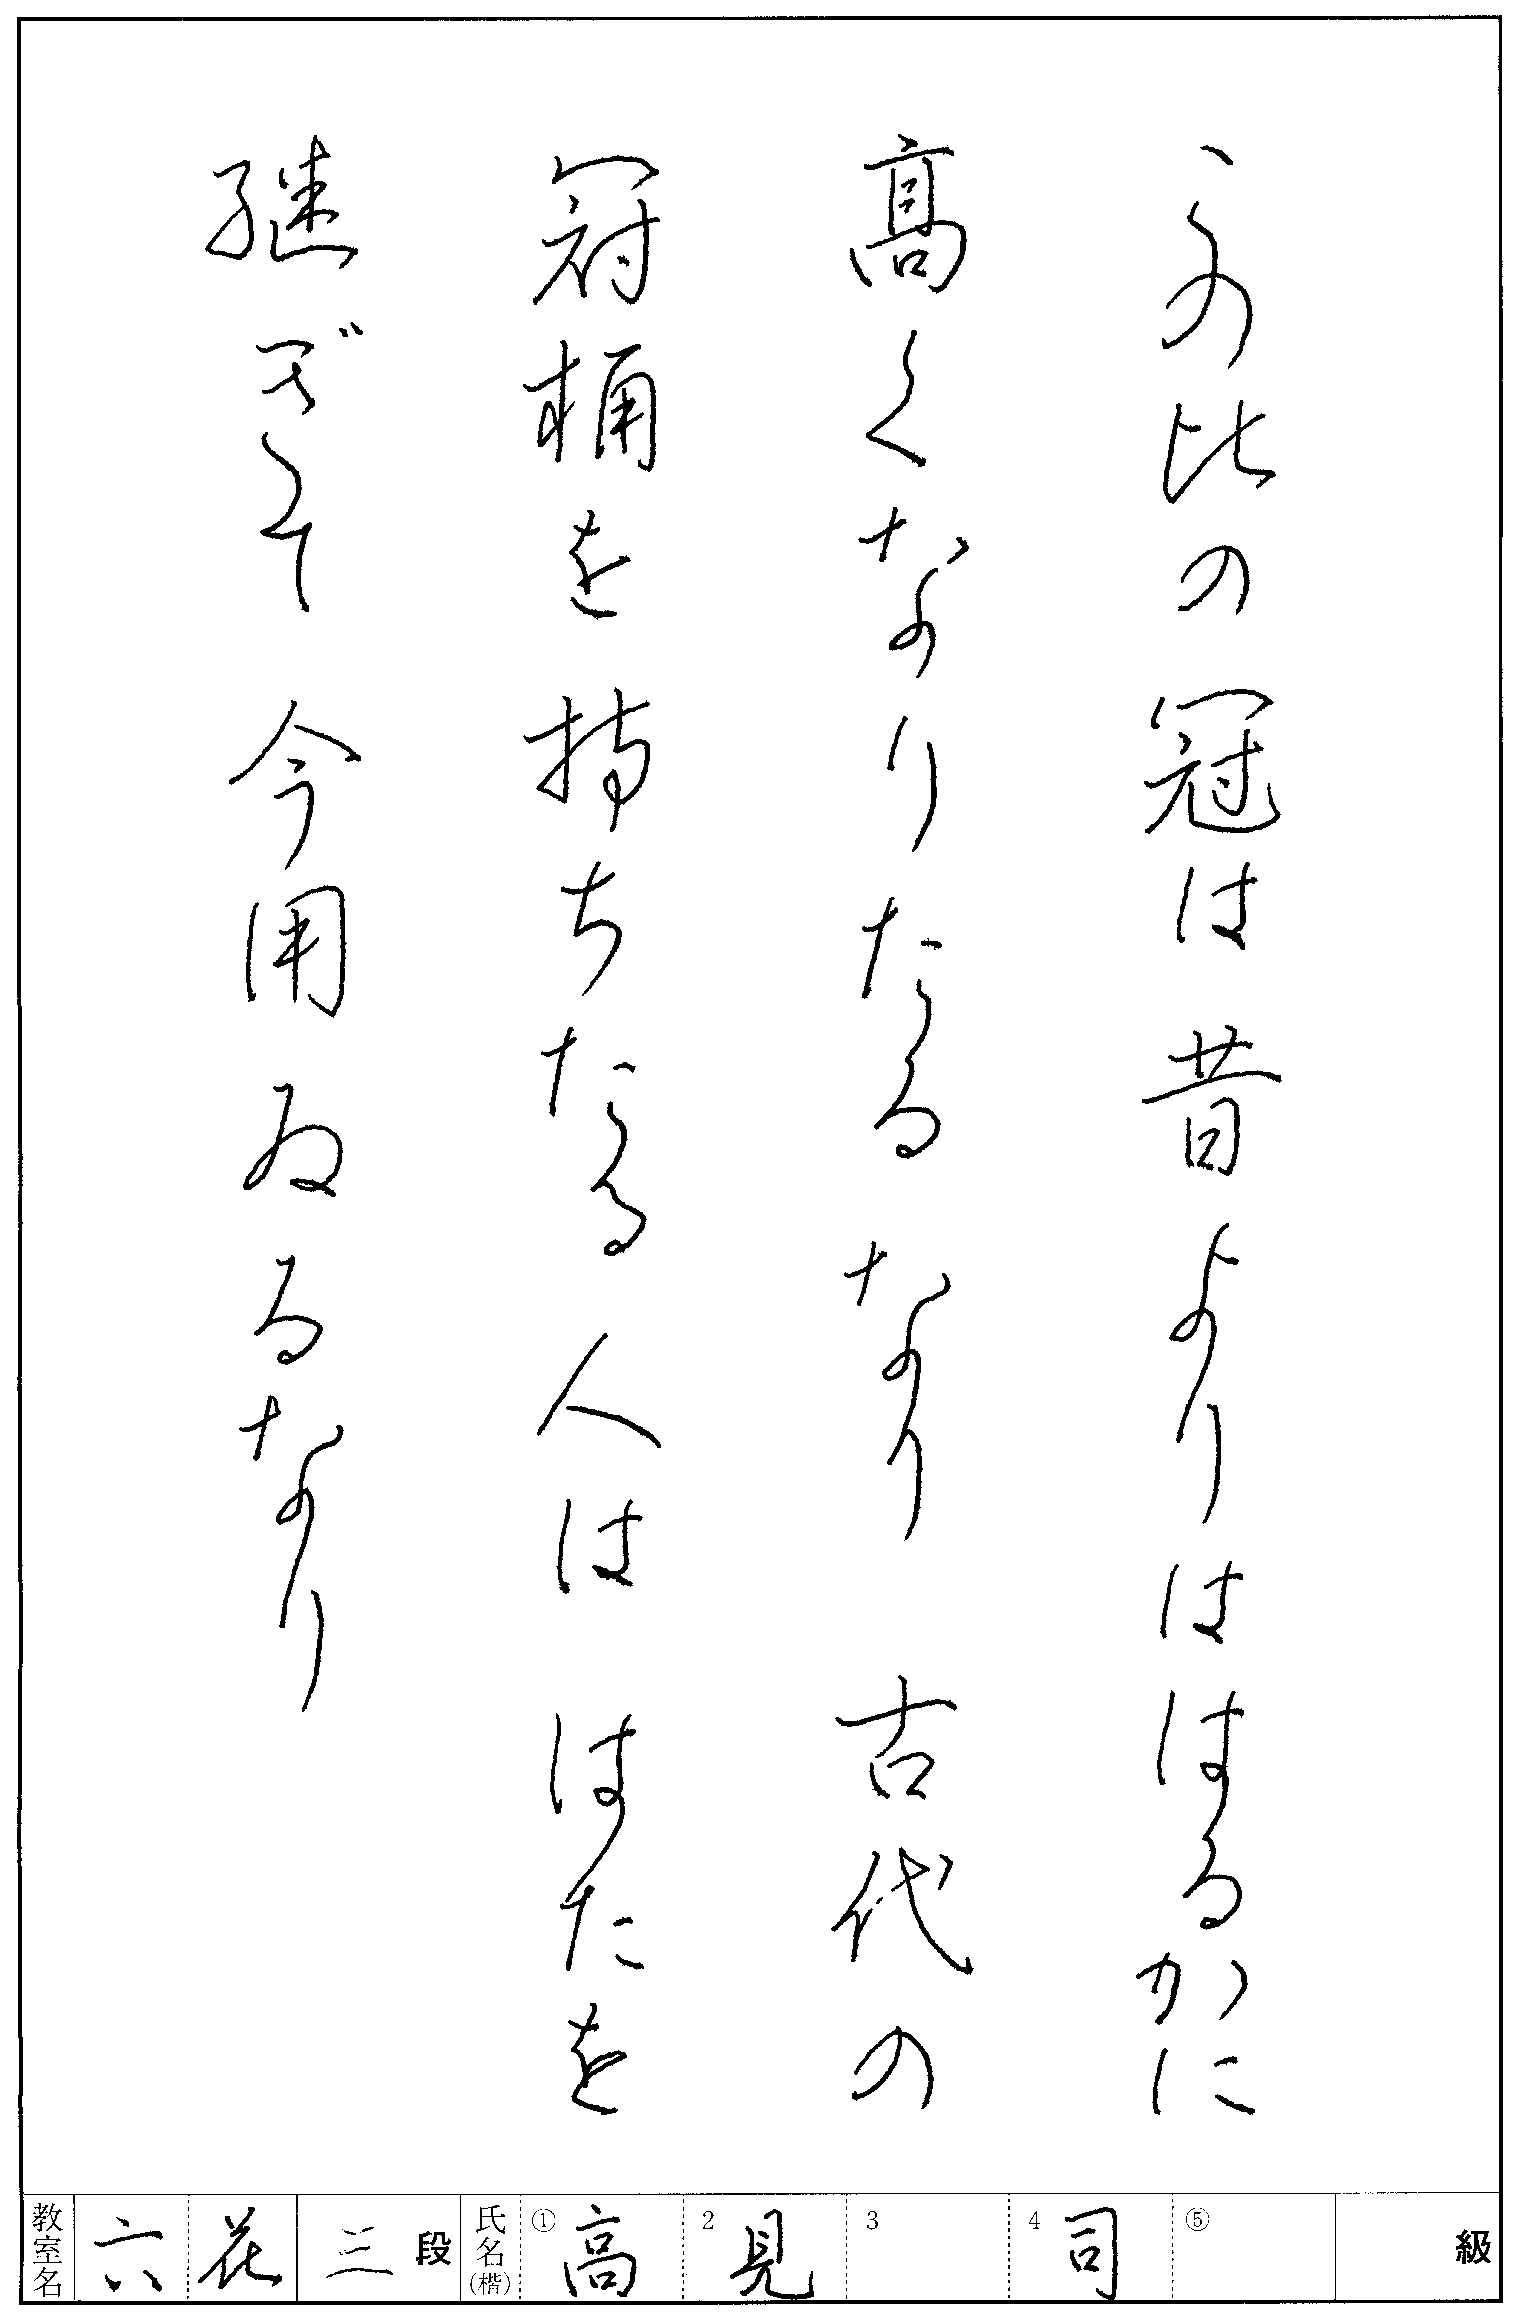 この比の冠は昔よりははるかに
高くなりたるなり 古代の
冠桶を持ちたる人は はたを
継ぎて 今用ゐるなり
教室名 六花 三段 氏名(楷) ①高 2見 3 4司 ⑤ 級